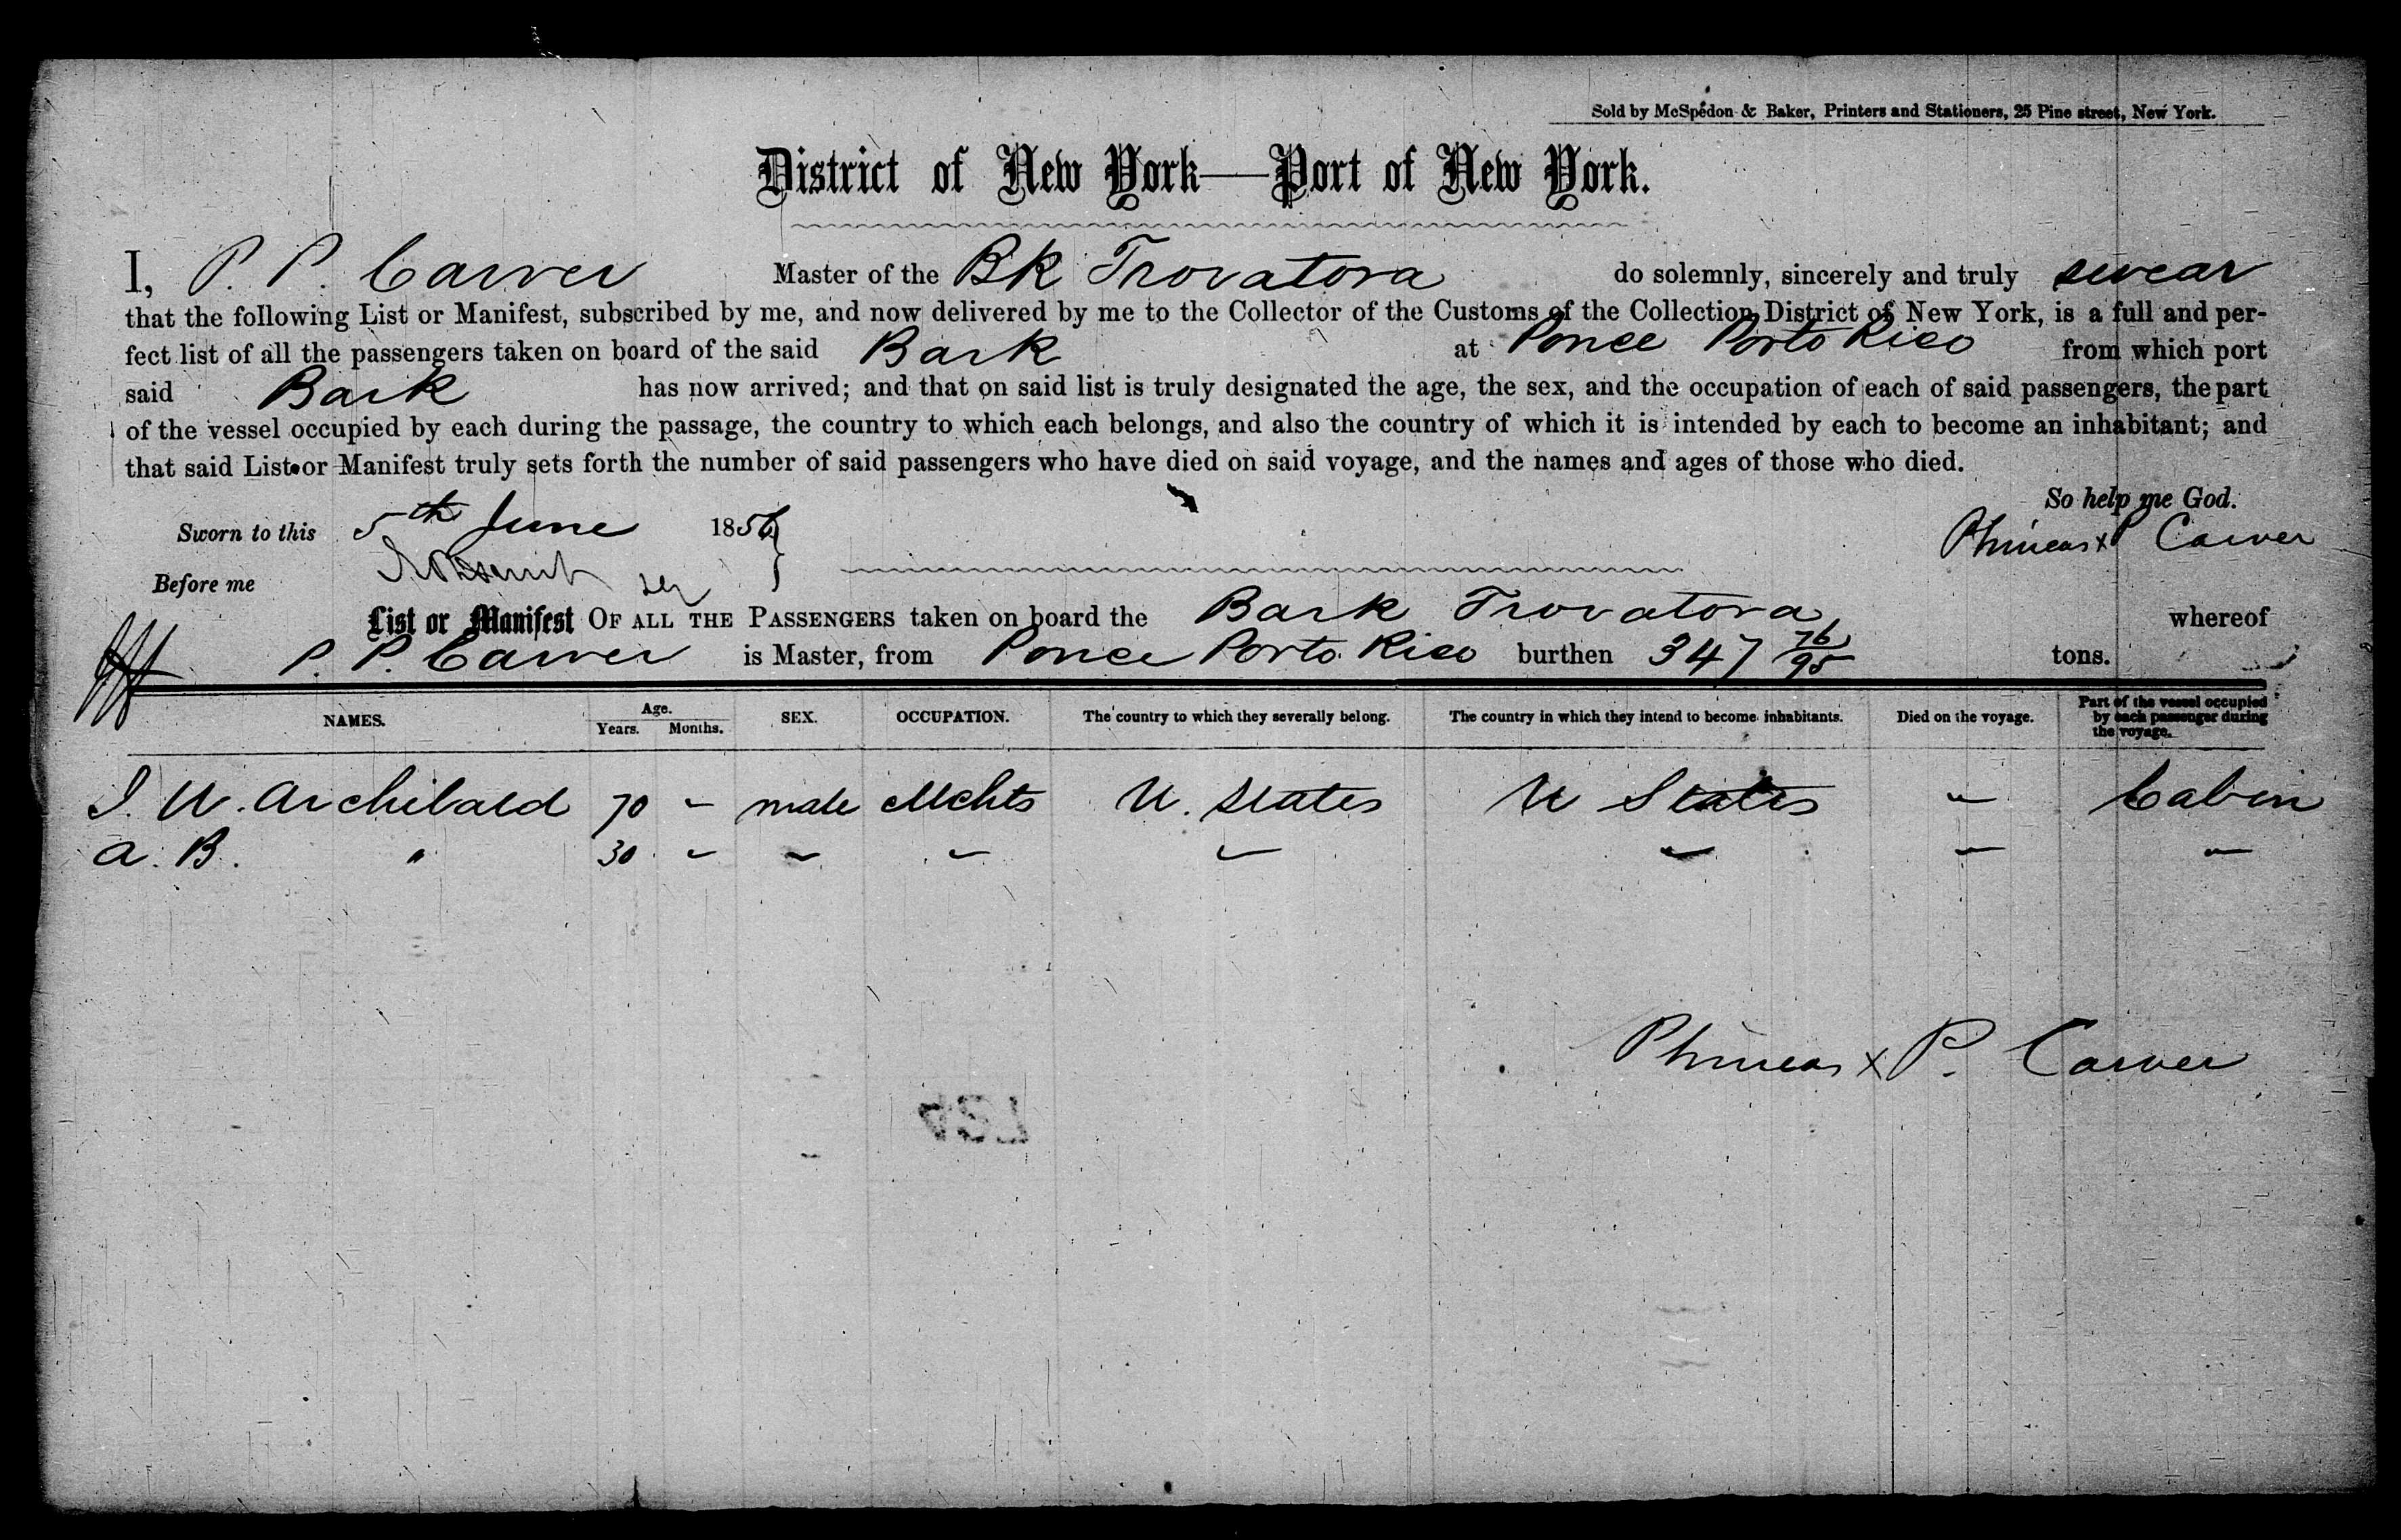 Sold by McSpedon & Baker, Printers and Stationers, 25 Pine street, New York.
District of New York—Port of New York.
I, P. P. Carver Master of the Bk Trovatora do solemnly, sincerely and truly swear
that the following List or Manifest, subscribed by me, and now delivered by me to the Collector of the Customs of the Collection District of New York, is a full and per-
fect list of all the passengers taken on board of the said Bark at Ponce Porto Rico from which port
said Bark has now arrived; and that on said list is truly designated the age, the sex, and the occupation of each of said passengers, the part
of the vessel occupied by each during the passage, the country to which each belongs, and also the country of which it is intended by each to become an inhabitant; and
that said List or Manifest truly sets forth the number of said passengers who have died on said voyage, and the names and ages of those who died.
So help me God.
Sworn to this 5th June 1856 } Phineas x P Carver
Before me
List or Manifest OF ALL THE PASSENGERS taken on board the Bark Trovatora whereof
P. P. Carver is Master, from Ponce Porto Rico burthen 347 76/95 tons.
NAMES. Age. Years. Months. SEX. OCCUPATION. The country to which they severally belong. The country in which they intend to become inhabitants. Died on the voyage. Part of the vessel occupied by each passenger during the voyage.
I. W. Archibald 70 - male Mchts U. States U States - Cabin
A. B. " 30 - - - - - - -
Phineas x P. Carver